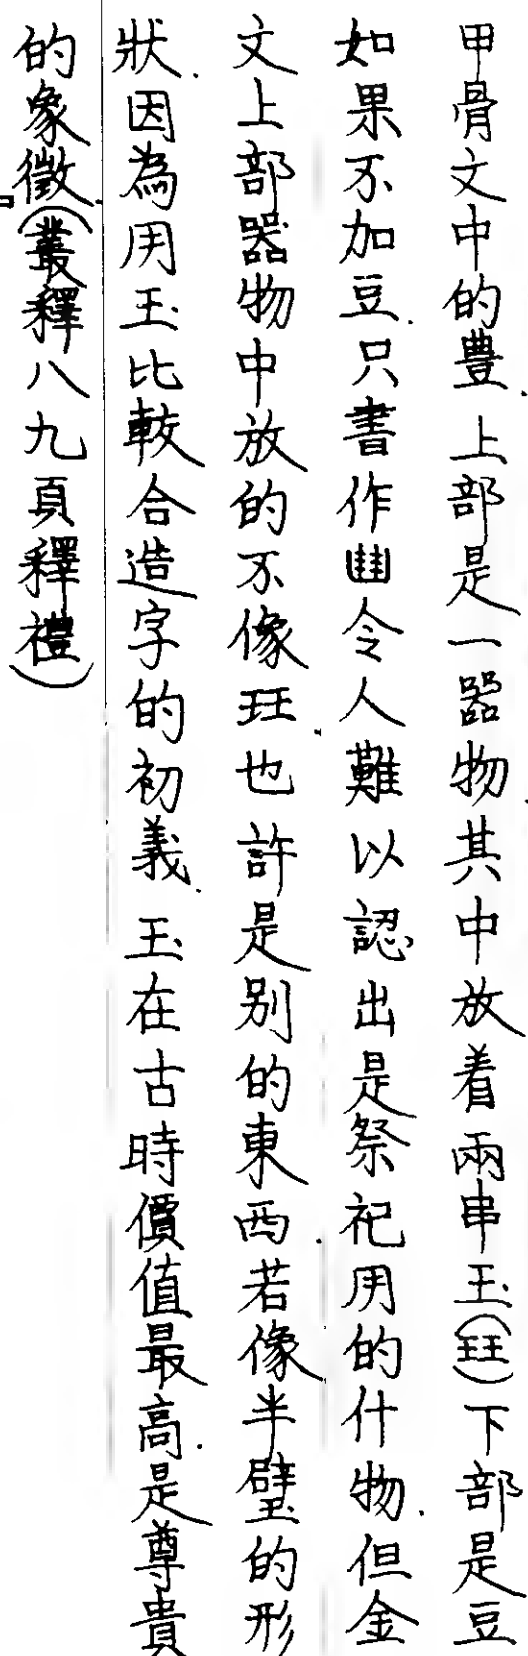 甲骨文中的豊.上部是一器物其中放着兩串玉(玨)下部是豆
如果不加豆.只書作𠁳令人難以認出是祭祀用的什物.但金
文上部器物中放的不像玨.也許是别的東西.若像半璧的形
狀.因為用玉比較合造字的初義.玉在古時價值最高.是尊貴
的象徵.(叢釋八九頁釋禮)